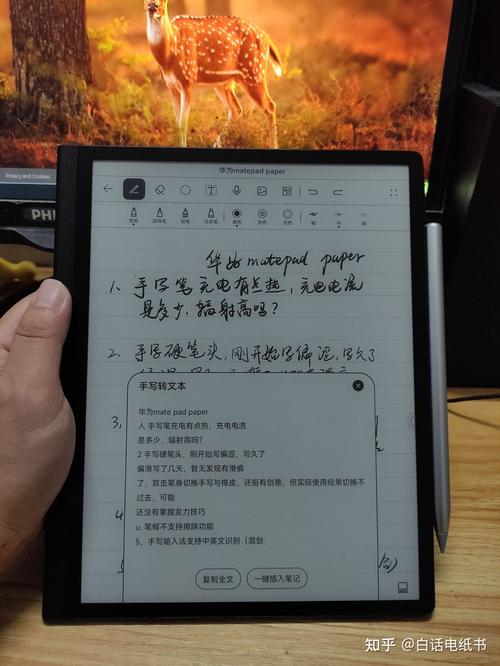 Privacy and Cookies
PHI
华为matepad paper
钢笔
圆珠笔
铅笔
马克笔
黑色
深灰
细
中
粗
华为matepad paper
1、手写笔充电有点热，充电电流
是多少，辐射高吗？
2、手写硬笔头，刚开始写偏涩，写久了
3、
手写转文本
华为mate pad paper
人 手写笔充电有点热，充电电流
是多少，辐射高吗?
2 手写硬笔头，刚开始写偏湿，写久了
偏滑写了几天，暂无发现有滑痕
了，双击笔身切换手写与橡皮，还挺有创意，但实际使用经常切换不
过去，可能
还没有掌握发力技巧
u. 笔帽不支持擦除功能
5、手写输入法支持中英文识别（混剑
4
复制全文
一键插入笔记
知乎 @白话电纸书